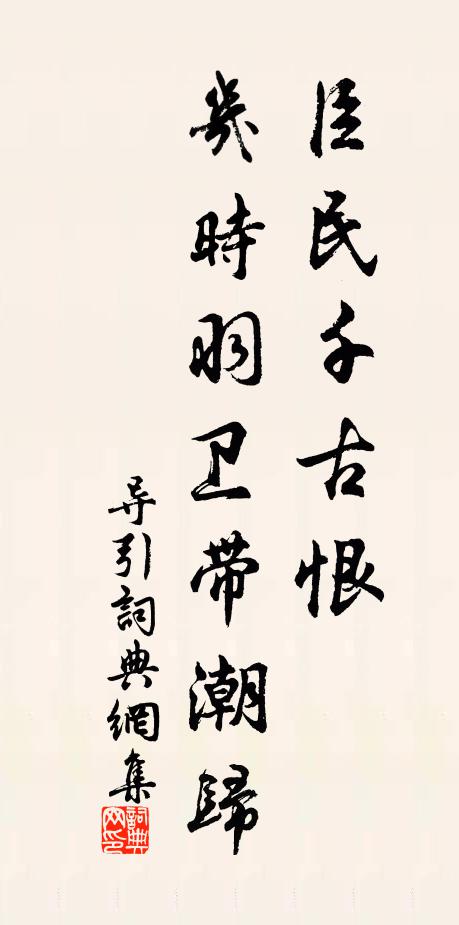 臣民千古恨
幾時羽卫帶潮歸
导引詞典網集
詞典網印